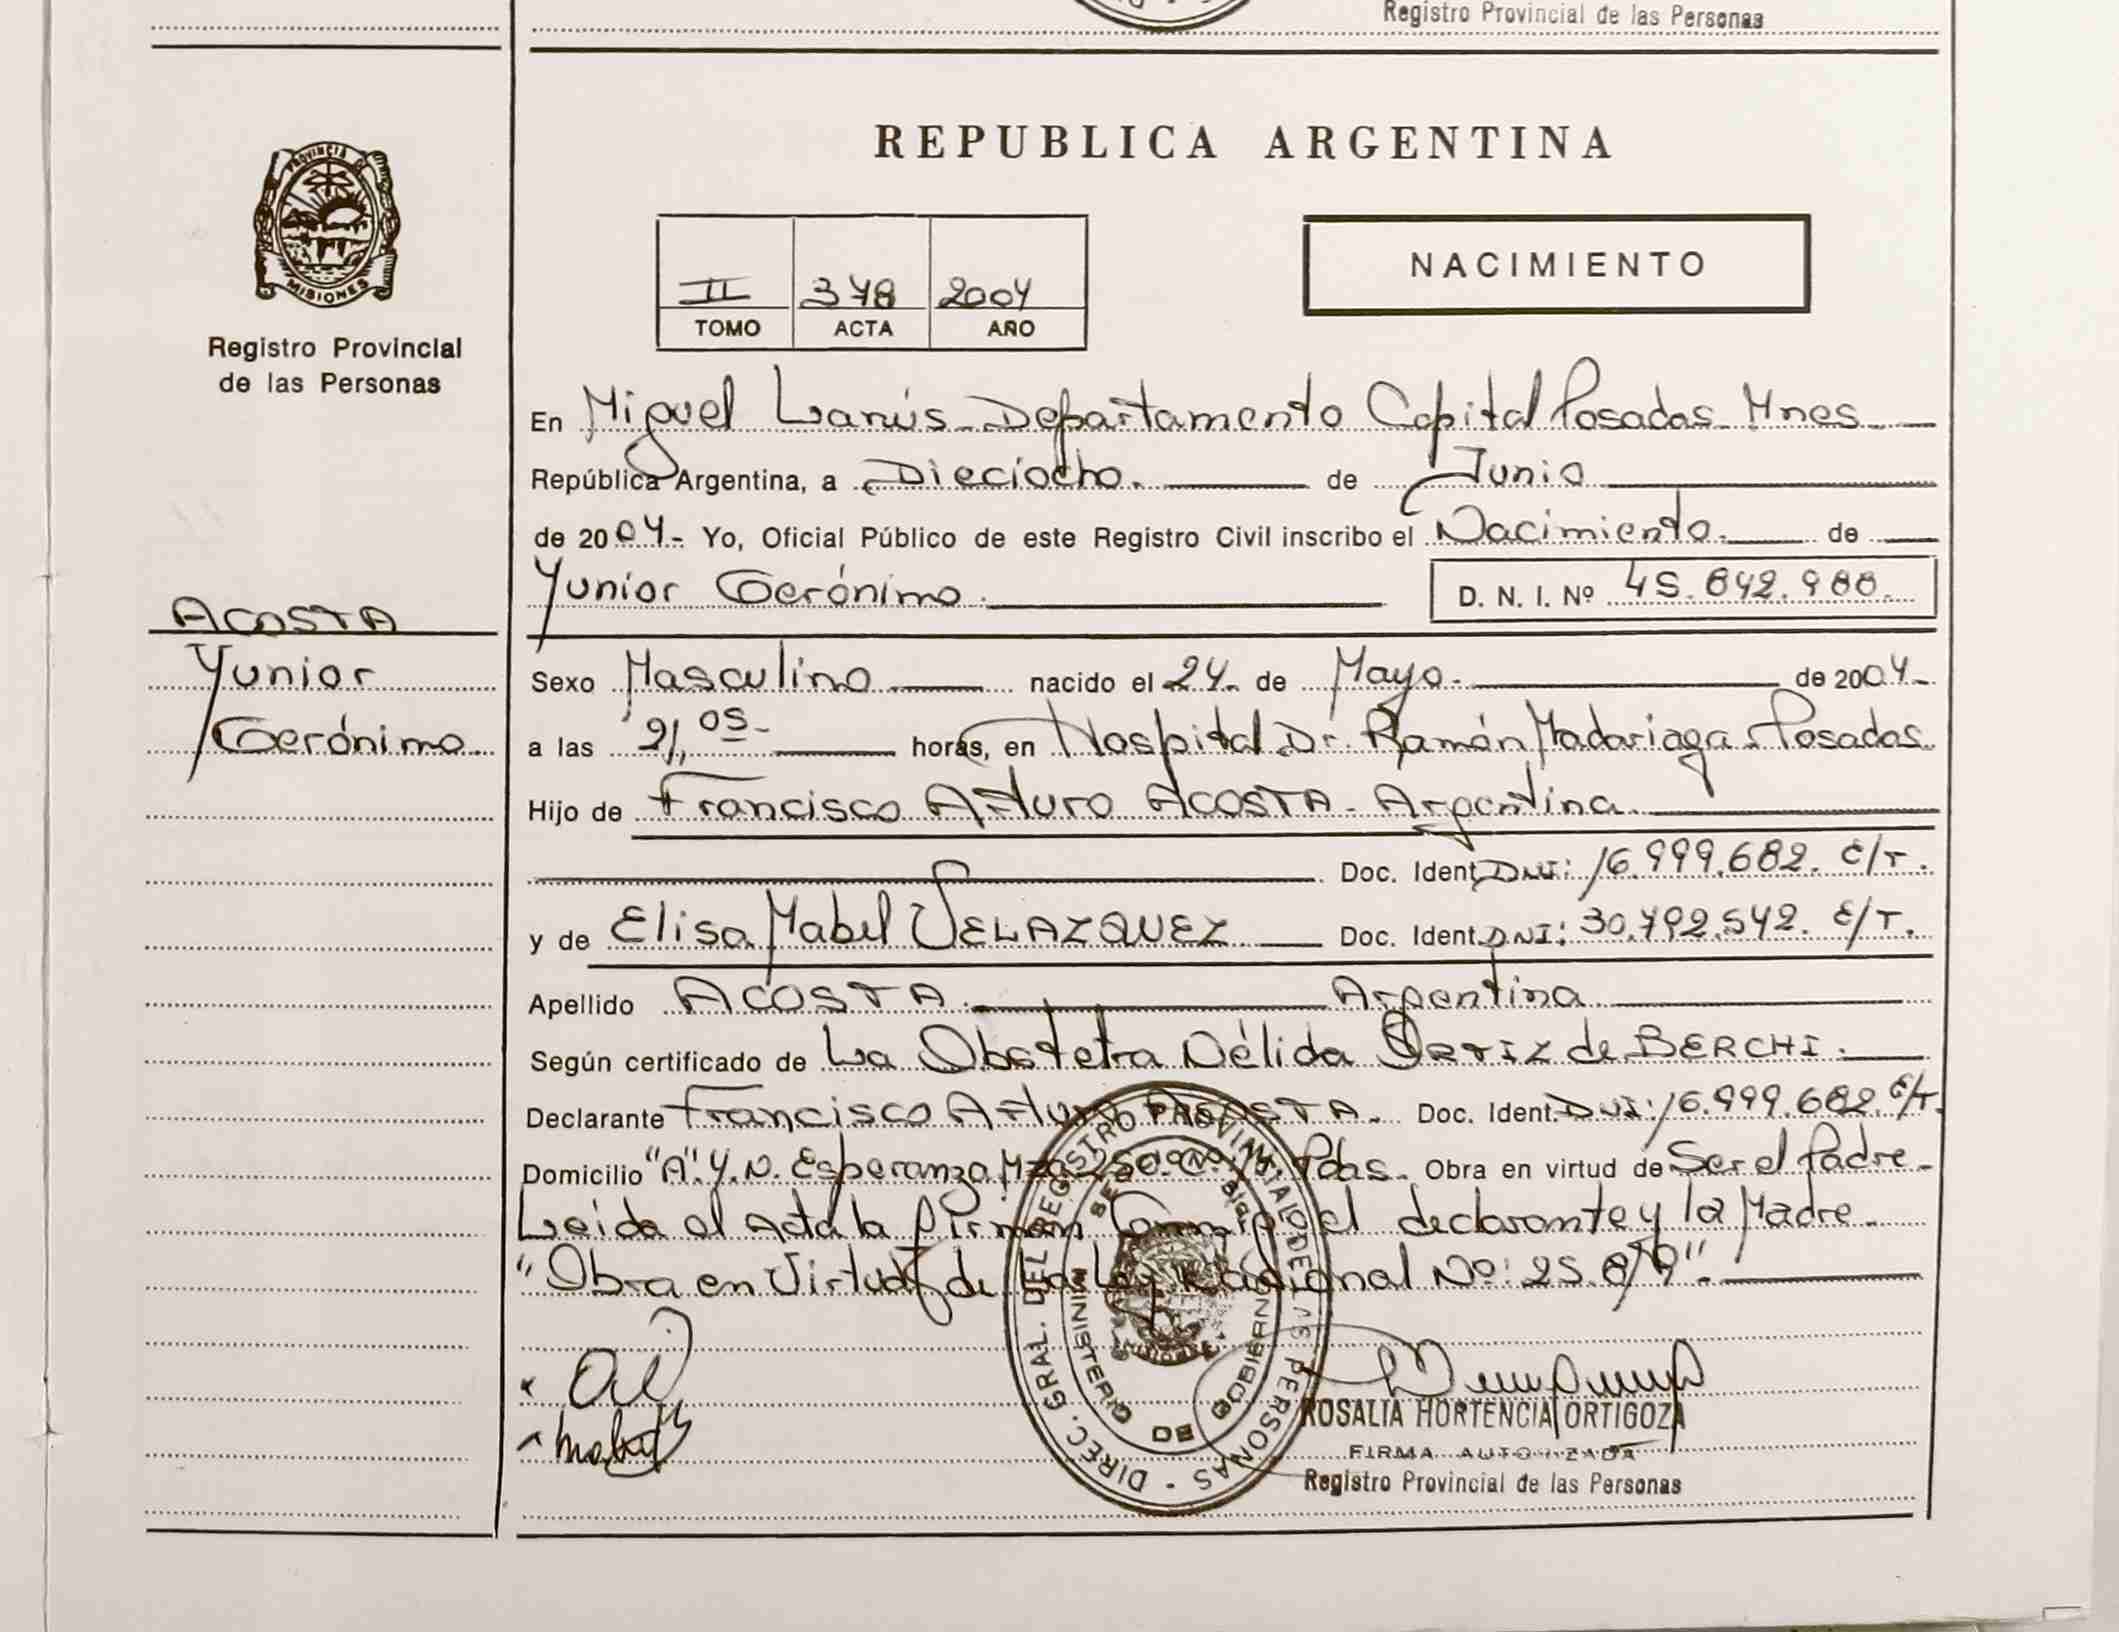 Registro Provincial de las Personas
PROVINCIA DE
MISIONES
Registro Provincial
de las Personas
REPUBLICA ARGENTINA
II 378 2004
TOMO ACTA AÑO
NACIMIENTO
En Miguel Lanús - Departamento Capital Posadas - Mnes
República Argentina, a Dieciocho. de Junio
de 2004- Yo, Oficial Público de este Registro Civil inscribo el Nacimiento. de
Yunior Gerónimo. D. N. I. Nº 45.842.988.
ACOSTA
Yunior
Gerónimo
Sexo Masculino nacido el 24- de Mayo- de 2004-
a las 21,05- horas, en Hospital Dr. Ramón Madariaga - Posadas
Hijo de Francisco Arturo ACOSTA - Argentina
Doc. Ident. DNI: 16.999.682. E/T.
y de Elisa Mabel VELAZQUEZ Doc. Ident. DNI: 30.792.542. E/T.
Apellido ACOSTA. Argentina
Según certificado de La Obstetra Nélida ORTIZ de BERCHI.
Declarante Francisco Arturo ACOSTA. Doc. Ident. DNI: 16.999.682. E/T.
Domicilio "A". Y. N. Esperanza Mza 250. Pdas. Obra en virtud de Ser el Padre-
Leida el Acta la firman Conmigo el declarante y la Madre
"Obra en Virtud de la Ley Nacional Nº: 25.819".
DIREC. GRAL. DEL REGISTRO PROVINCIAL DE LAS PERSONAS
MINISTERIO DE GOBIERNO
Mabel
ROSALIA HORTENCIA ORTIGOZA
FIRMA AUTORIZADA
Registro Provincial de las Personas